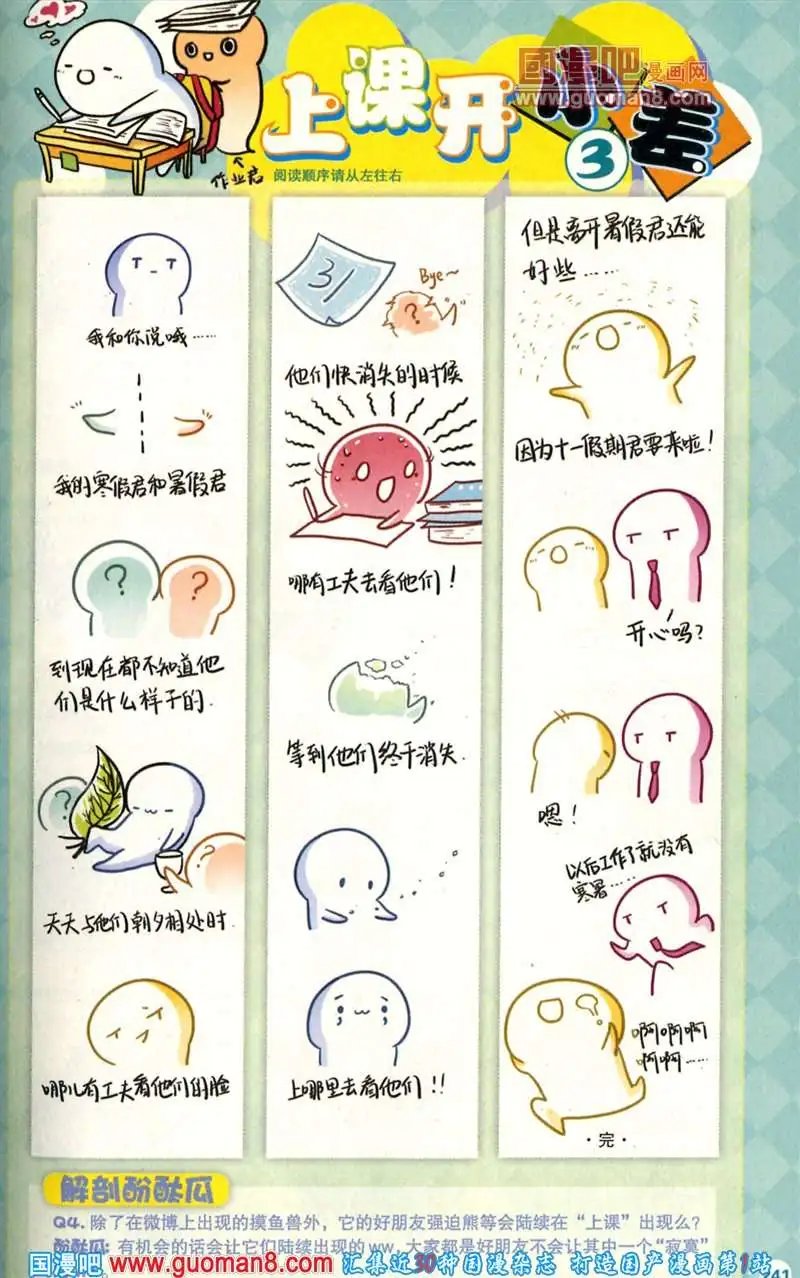 上课开小差
國漫吧漫画网
www.guoman8.com
3
作业君
阅读顺序请从左往右
我和你说哦……
我的寒假君和暑假君
?
?
到现在都不知道他
们是什么样子的.
?
?
天天与他们朝夕相处时.
哪儿有工夫看他们的脸
31
Bye~
?
他们快消失的时候
哪有工夫去看他们！
等到他们终于消失.
上哪里去看他们！！
但是离开暑假君还能
好些……
因为十一假期君要来啦！
开心吗？
嗯！
以后工作了就没有
寒暑……
啊啊啊
啊啊……
·完·
解剖酚酞瓜
Q4. 除了在微博上出现的摸鱼兽外，它的好朋友强迫熊等会陆续在“上课”出现么？
酚酞瓜: 有机会的话会让它们陆续出现的ww，大家都是好朋友不会让其中一个“寂寞”
国漫吧 www.guoman8.com 汇集近30种国漫杂志 打造国产漫画第1站
41